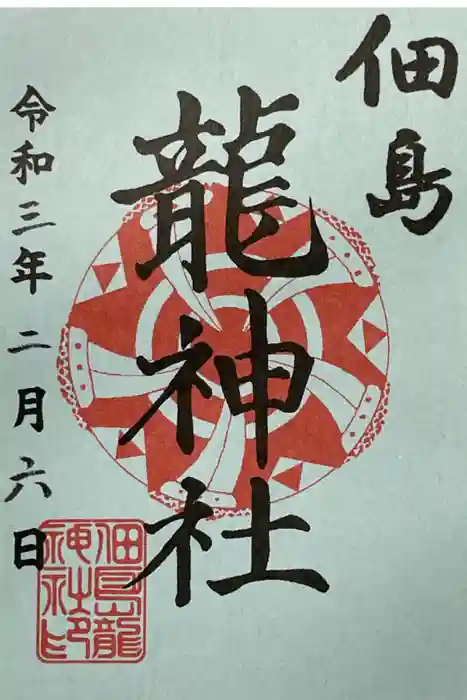 佃島
龍神社
令和三年二月六日
佃島龍
神社印